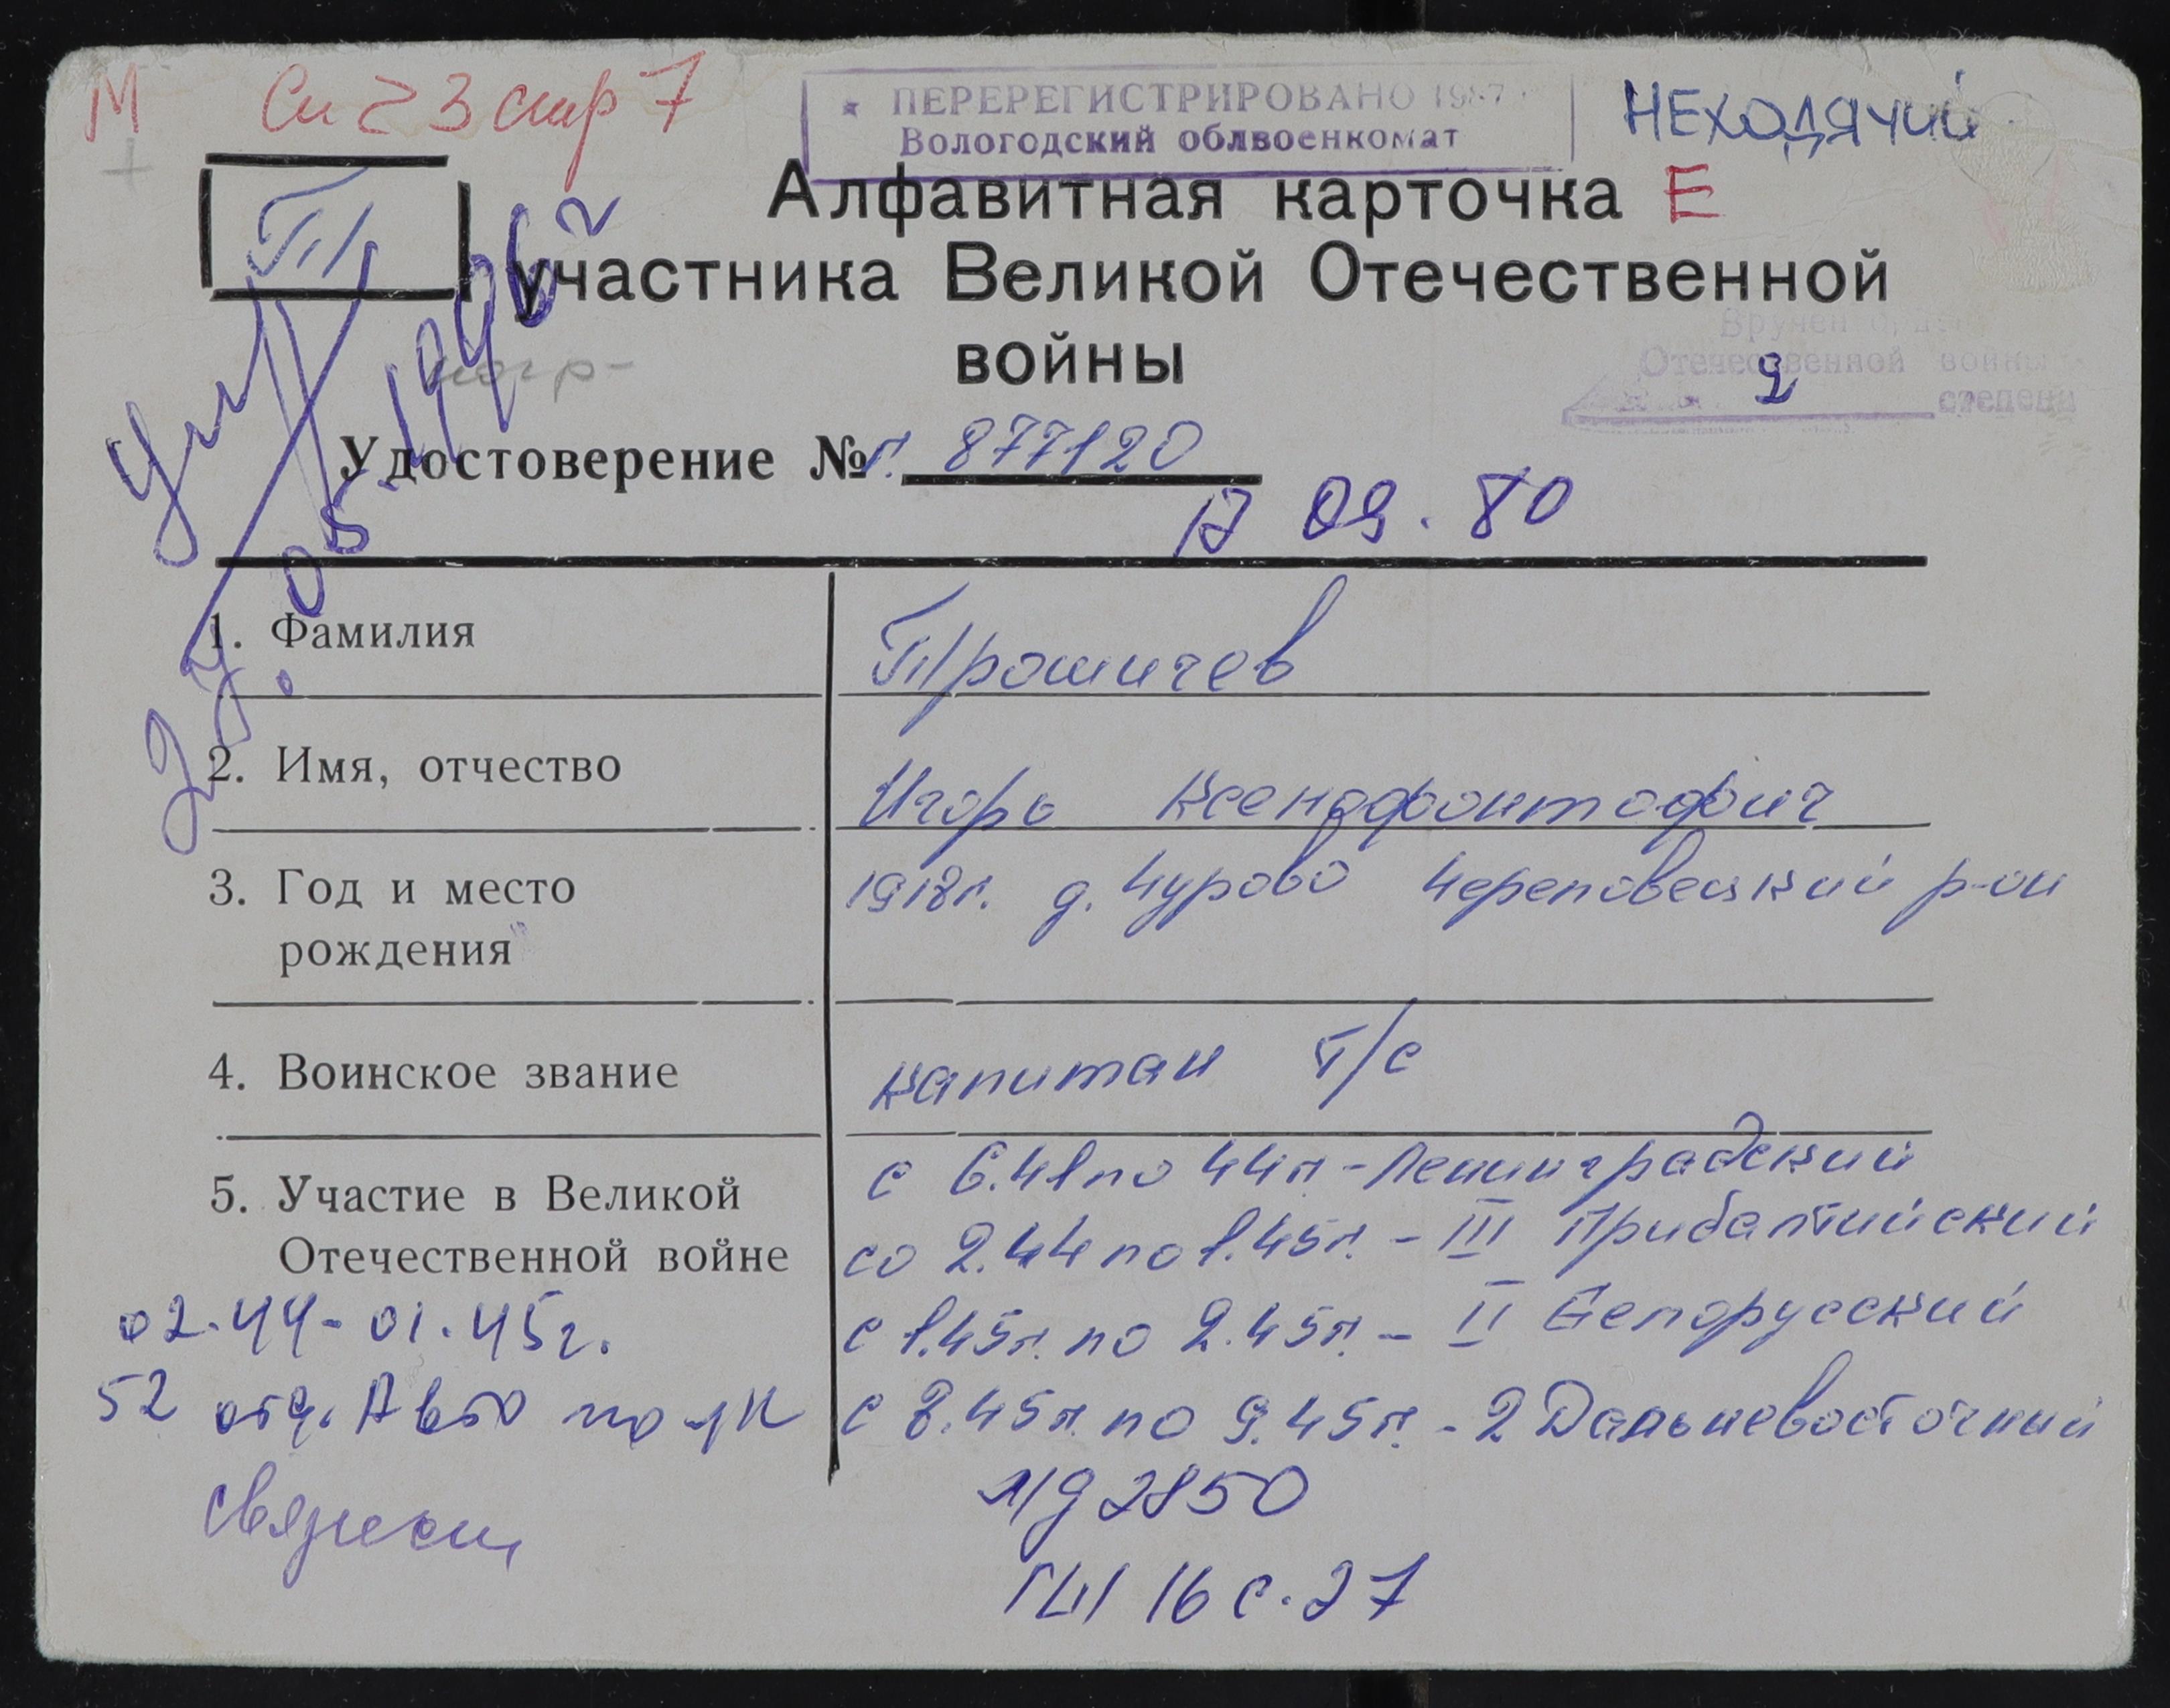 М Сп 23 стр 7
ПЕРЕРЕГИСТРИРОВАНО 1987
Вологодский облвоенкомат
НЕХОДЯЧИЙ
Т
Алфавитная карточка Е
участника Великой Отечественной
войны
Вручен орден
Отечественной войны
2 степени
Ум
27.05.1996 г
Удостоверение № г. 877120
17 09.80
1. Фамилия
Трошичев
2. Имя, отчество
Игорь Ксенофонтофич
3. Год и место
рождения
1918г. д. Чурово Череповецкий р-он
4. Воинское звание
капитан т/с
5. Участие в Великой
Отечественной войне
с 6.41 по 44г - Ленинградский
со 2.44 по 1.45г. - III Прибалтийский
с 1.45г. по 2.45г. - II Белорусский
с 8.45г. по 9.45г. - 2 Дальневосточный
02.44 - 01.45г.
52 отд. Авто полк
связист
л/д 2850
16 с. 27